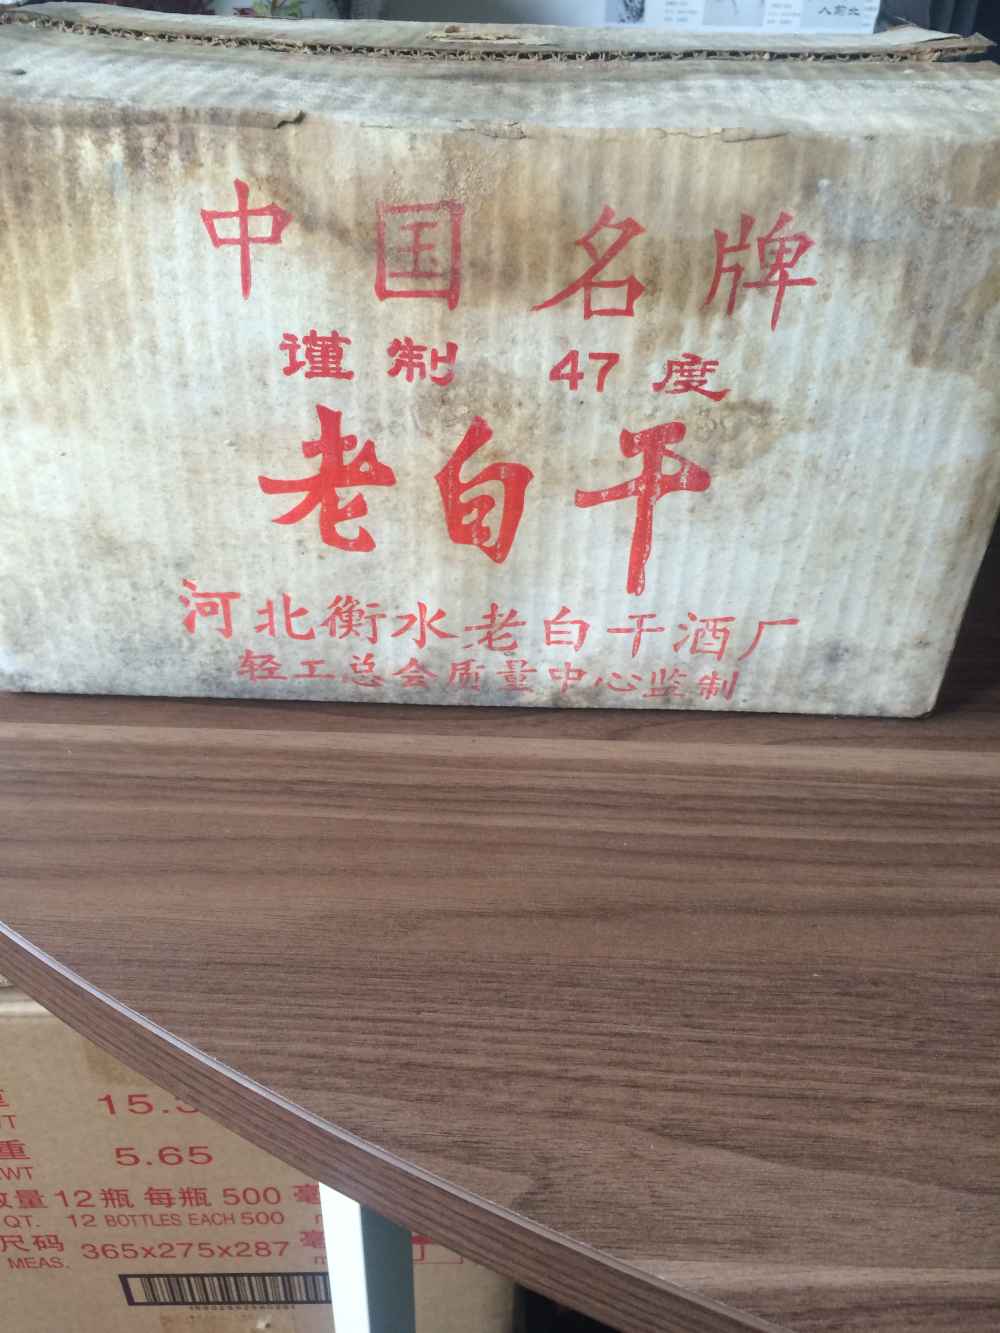 人前北
中国名牌
谨制 47度
老白干
河北衡水老白干酒厂
轻工总会质量中心监制
15.5
重 5.65
WT
数量 12瓶 每瓶 500 毫
QT. 12 BOTTLES EACH 500
尺码 365x275x287 毫
MEAS.